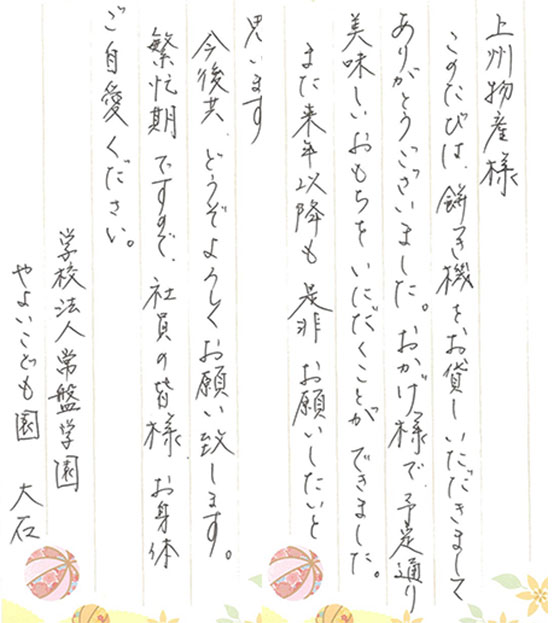 上州物産様
このたびは、餅つき機をお貸しいただきまして
ありがとうございました。おかげ様で、予定通り
美味しいおもちをいただくことができました。
また来年以降も是非お願いしたいと
思います
今後共、どうぞよろしくお願い致します。
繁忙期ですので、社員の皆様、お身体
ご自愛ください。
学校法人常盤学園
やよいこども園 大石